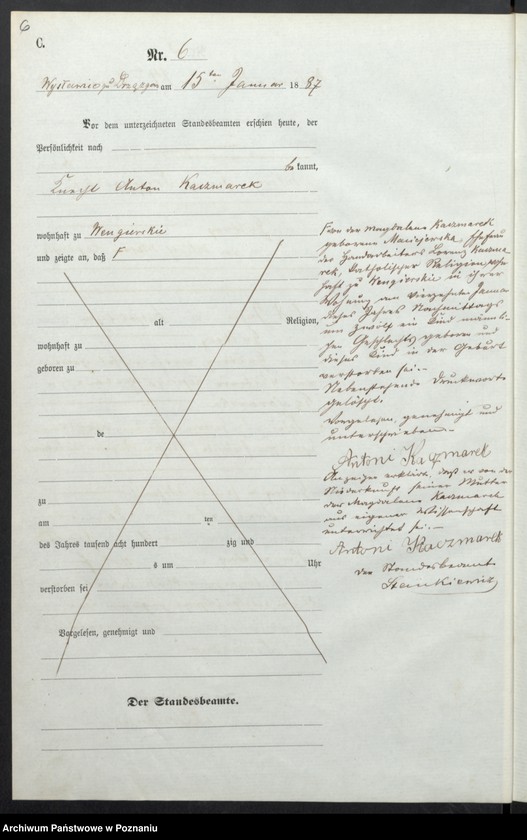 6
C.
Nr. 6
am 15ten Januar 1887
Vor dem unterzeichneten Standesbeamten erschien heute, der
Persönlichkeit nach
bekannt,
Knecht Anton Kaczmarek
wohnhaft zu Wengierskie
und zeigte an, daß F
alt Religion,
wohnhaft zu
geboren zu
de
zu
am ten
des Jahres tausend acht hundert zig und
s um Uhr
verstorben sei
Vorgelesen, genehmigt und
Der Standesbeamte.
F von der Magdalena Kaczmarek
geborene Maciejewska, Ehefrau
des Handarbeiters Lorenz Kaczma-
rek, katholischer Religion, wohn-
haft zu Wengierskie in ihrer
Wohnung am vierzehnten Januar
dieses Jahres Nachmittags
um zwölf ein Kind männli-
chen Geschlechts geboren und
dieses Kind in der Geburt
verstorben sei.-
Nebenstehende Druckworte
gelöscht.
Vorgelesen, genehmigt und
unterschrieben.-
Antoni Kaczmarek
Anzeiger erklärt, daß er von der
Niederkunft seiner Mutter
der Magdalena Kaczmarek
aus eigener Wissenschaft
unterrichtet sei.-
Antoni Kaczmarek
Der Standesbeamte
Stankiewicz
Archiwum Państwowe w Poznaniu